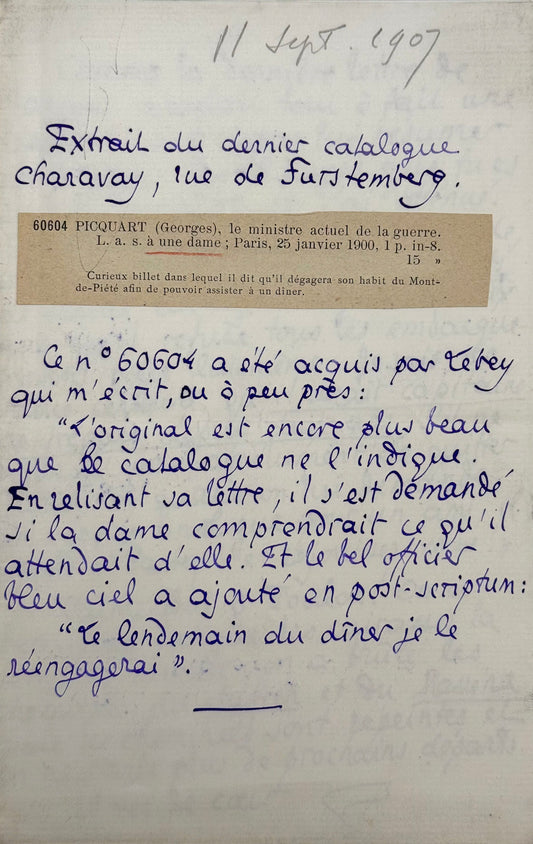 11 Sept. 1907
Extrait du dernier catalogue
Charavay, rue de Furstemberg.
60604 PICQUART (Georges), le ministre actuel de la guerre.
L. a. s. à une dame ; Paris, 25 janvier 1900, 1 p. in-8.
15 »
Curieux billet dans lequel il dit qu'il dégagera son habit du Mont-
de-Piété afin de pouvoir assister à un dîner.
Ce n° 60604 a été acquis par Lebey
qui m'écrit, ou à peu près :
"L'original est encore plus beau
que le catalogue ne l'indique.
En relisant sa lettre, il s'est demandé
si la dame comprendrait ce qu'il
attendait d'elle. Et le bel officier
bleu ciel a ajouté en post-scriptum :
"Le lendemain du dîner je le
réengagerai".